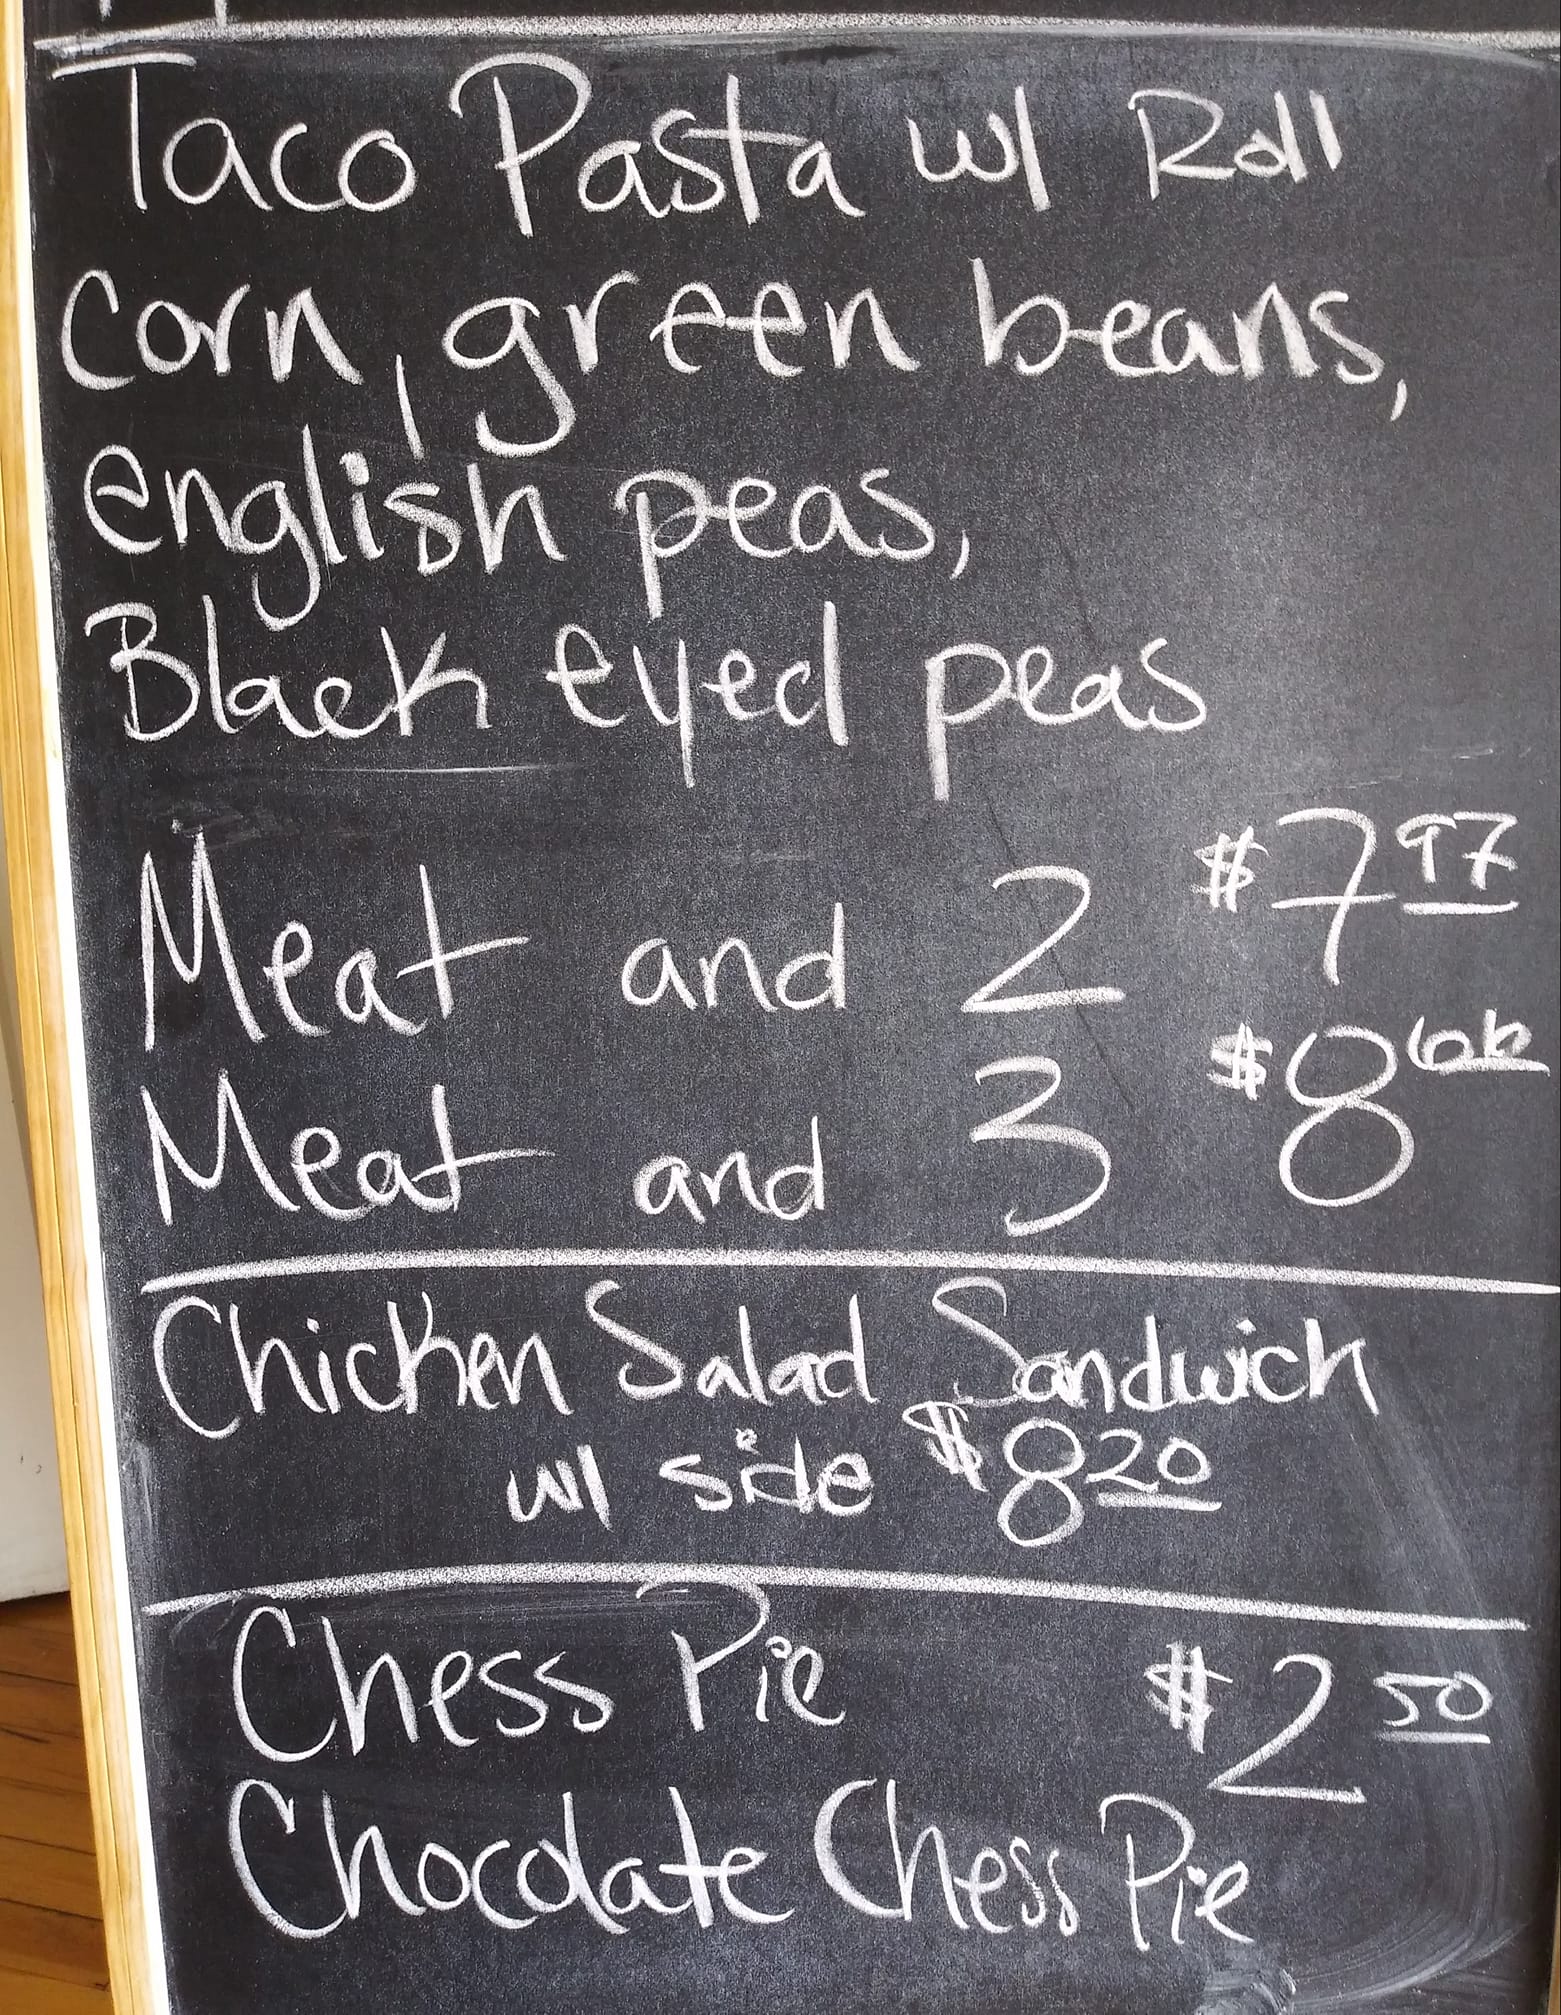 Taco Pasta w/ Roll
corn, green beans,
english peas,
Black eyed peas
Meat and 2 $7.97
Meat and 3 $8.66
Chicken Salad Sandwich
w/ side $8.20
Chess Pie $2.50
Chocolate Chess Pie